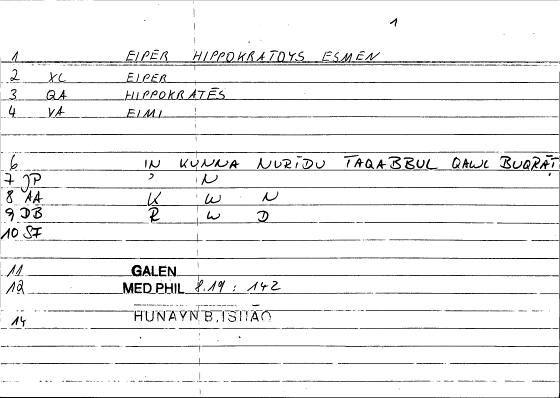 1
1 EIPER HIPPOKRATOYS ESMEN
2 XL EIPER
3 QA HIPPOKRATĒS
4 VA EIMI
6 IN KUNNA NURĪDU TAQABBUL QAWL BUQRĀṬ
7 JP ʾ N
8 AA K W N
9 DB R W D
10 SF
11 GALEN
12 MED PHIL 8.19 : 142
14 HUNAYN B. ISHĀQ